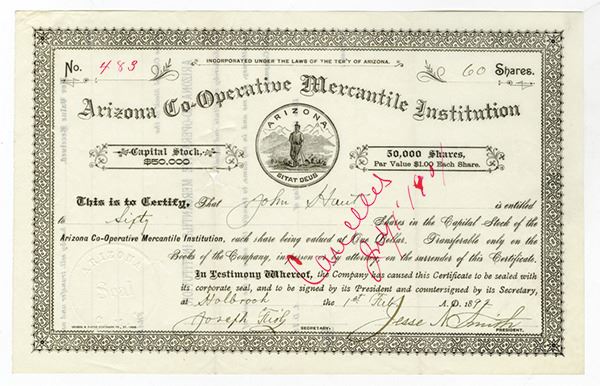 INCORPORATED UNDER THE LAWS OF THE TER'Y OF ARIZONA.
No. 483
60 Shares.
Arizona Co-Operative Mercantile Institution
ARIZONA
SITAT DEUS
Capital Stock,
$50,000.
50,000 SHARES,
Par Value $1.00 Each Share.
This is to Certify, That John is entitled
to Sixty Shares in the Capital Stock of the
Arizona Co-Operative Mercantile Institution, each share being valued at One Dollar. Transferable only on the
Books of the Company, in person or by attorney on the surrender of this Certificate.
In Testimony Whereof, the Company has caused this Certificate to be sealed with
its corporate seal, and to be signed by its President and countersigned by its Secretary,
at Holbrook the 1st Feb. A.D. 1892
Joseph
SECRETARY.
Jesse N. Smith
PRESIDENT.
Cancelled